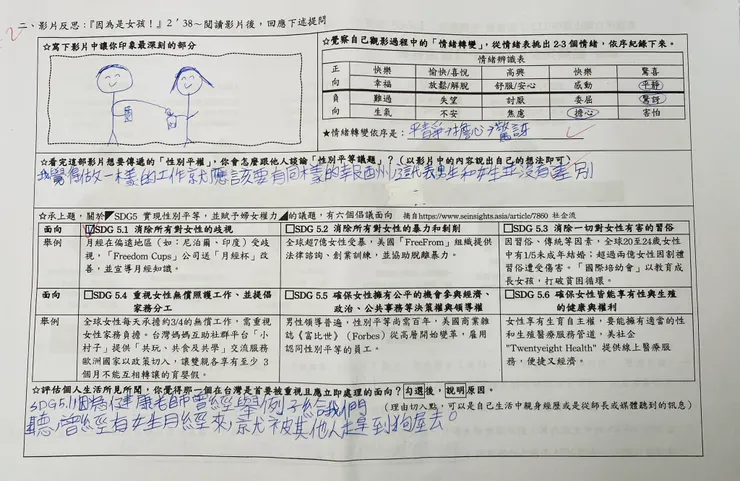 二、影片反思：『因為是女孩！』2'38～閱讀影片後，回應下述提問
☆寫下影片中讓你印象最深刻的部分
☆覺察自己觀影過程中的「情緒轉變」，從情緒表挑出 2-3 個情緒，依序紀錄下來。
情緒辨識表
正向 快樂 愉快/喜悅 高興 快樂 驚喜
幸福 放鬆/解脫 舒服/安心 感動 平靜
負向 難過 失望 討厭 委屈 驚訝
生氣 不安 焦慮 擔心 害怕
★情緒轉變依序是：平靜→擔心→驚訝
☆看完這部影片想要傳遞的「性別平權」，你會怎麼跟他人談論「性別平等議題」？（以影片中的內容說出自己的想法即可）
我覺得做一樣的工作就應該要有同樣的報酬，以代表男生和女生並沒有差別
☆承上題，關於◤SDG5 實現性別平等，並賦予婦女權力◢的議題，有六個倡議面向 摘自https://www.seinsights.asia/article/7860 社企流
面向 ☑SDG 5.1 消除所有對女性的歧視 □SDG 5.2 消除所有對女性的暴力和剝削 □SDG 5.3 消除一切對女性有害的習俗
舉例 月經在偏遠地區（如：尼泊爾、印度）受歧視，「Freedom Cups」公司送「月經杯」改善，並宣導月經知識。
全球超7億女性受暴，美國「FreeFrom」組織提供法律諮詢、創業訓練，並協助脫離暴力。
因習俗、傳統等因素，全球20至24歲女性中有1/5未成年結婚；超過兩億女性因割禮習俗遭受傷害。「國際培幼會」以教育成長女孩，打破貧困循環。
面向 □SDG 5.4 重視女性無償照護工作、並提倡家務分工 □SDG 5.5 確保女性擁有公平的機會參與經濟、政治、公共事務等決策權與領導權 □SDG 5.6 確保女性皆能享有性與生殖的健康與權利
舉例 全球女性每天承擔約3/4的無償工作，需重視女性家務負擔。台灣媽媽互助社群平台「小村子」提供「共玩、共食及共學」交流服務歐洲國家以政策切入，讓雙親各享有至少 3個月不能互相轉讓的育嬰假。
男性領導普遍，性別平等尚需百年，美國商業雜誌《富比世》(Forbes) 從高層開始變革，雇用認同性別平等的員工。
女性享有生育自主權，要能擁有適當的性和生殖醫療服務管道，美社企 "Twentyeight Health" 提供線上醫療服務，便捷又經濟。
☆評估個人生活所見所聞，你覺得那一個在台灣是首要被重視且應立即處理的面向？勾選後，說明原因。
（理由切入點，可以是自己生活中親身經歷或是從師長或媒體聽到的訊息）
SDG5.1因為健康老師曾經舉例子給我們
聽，曾經有女生月經來，就被其他人趕到狗屋去。